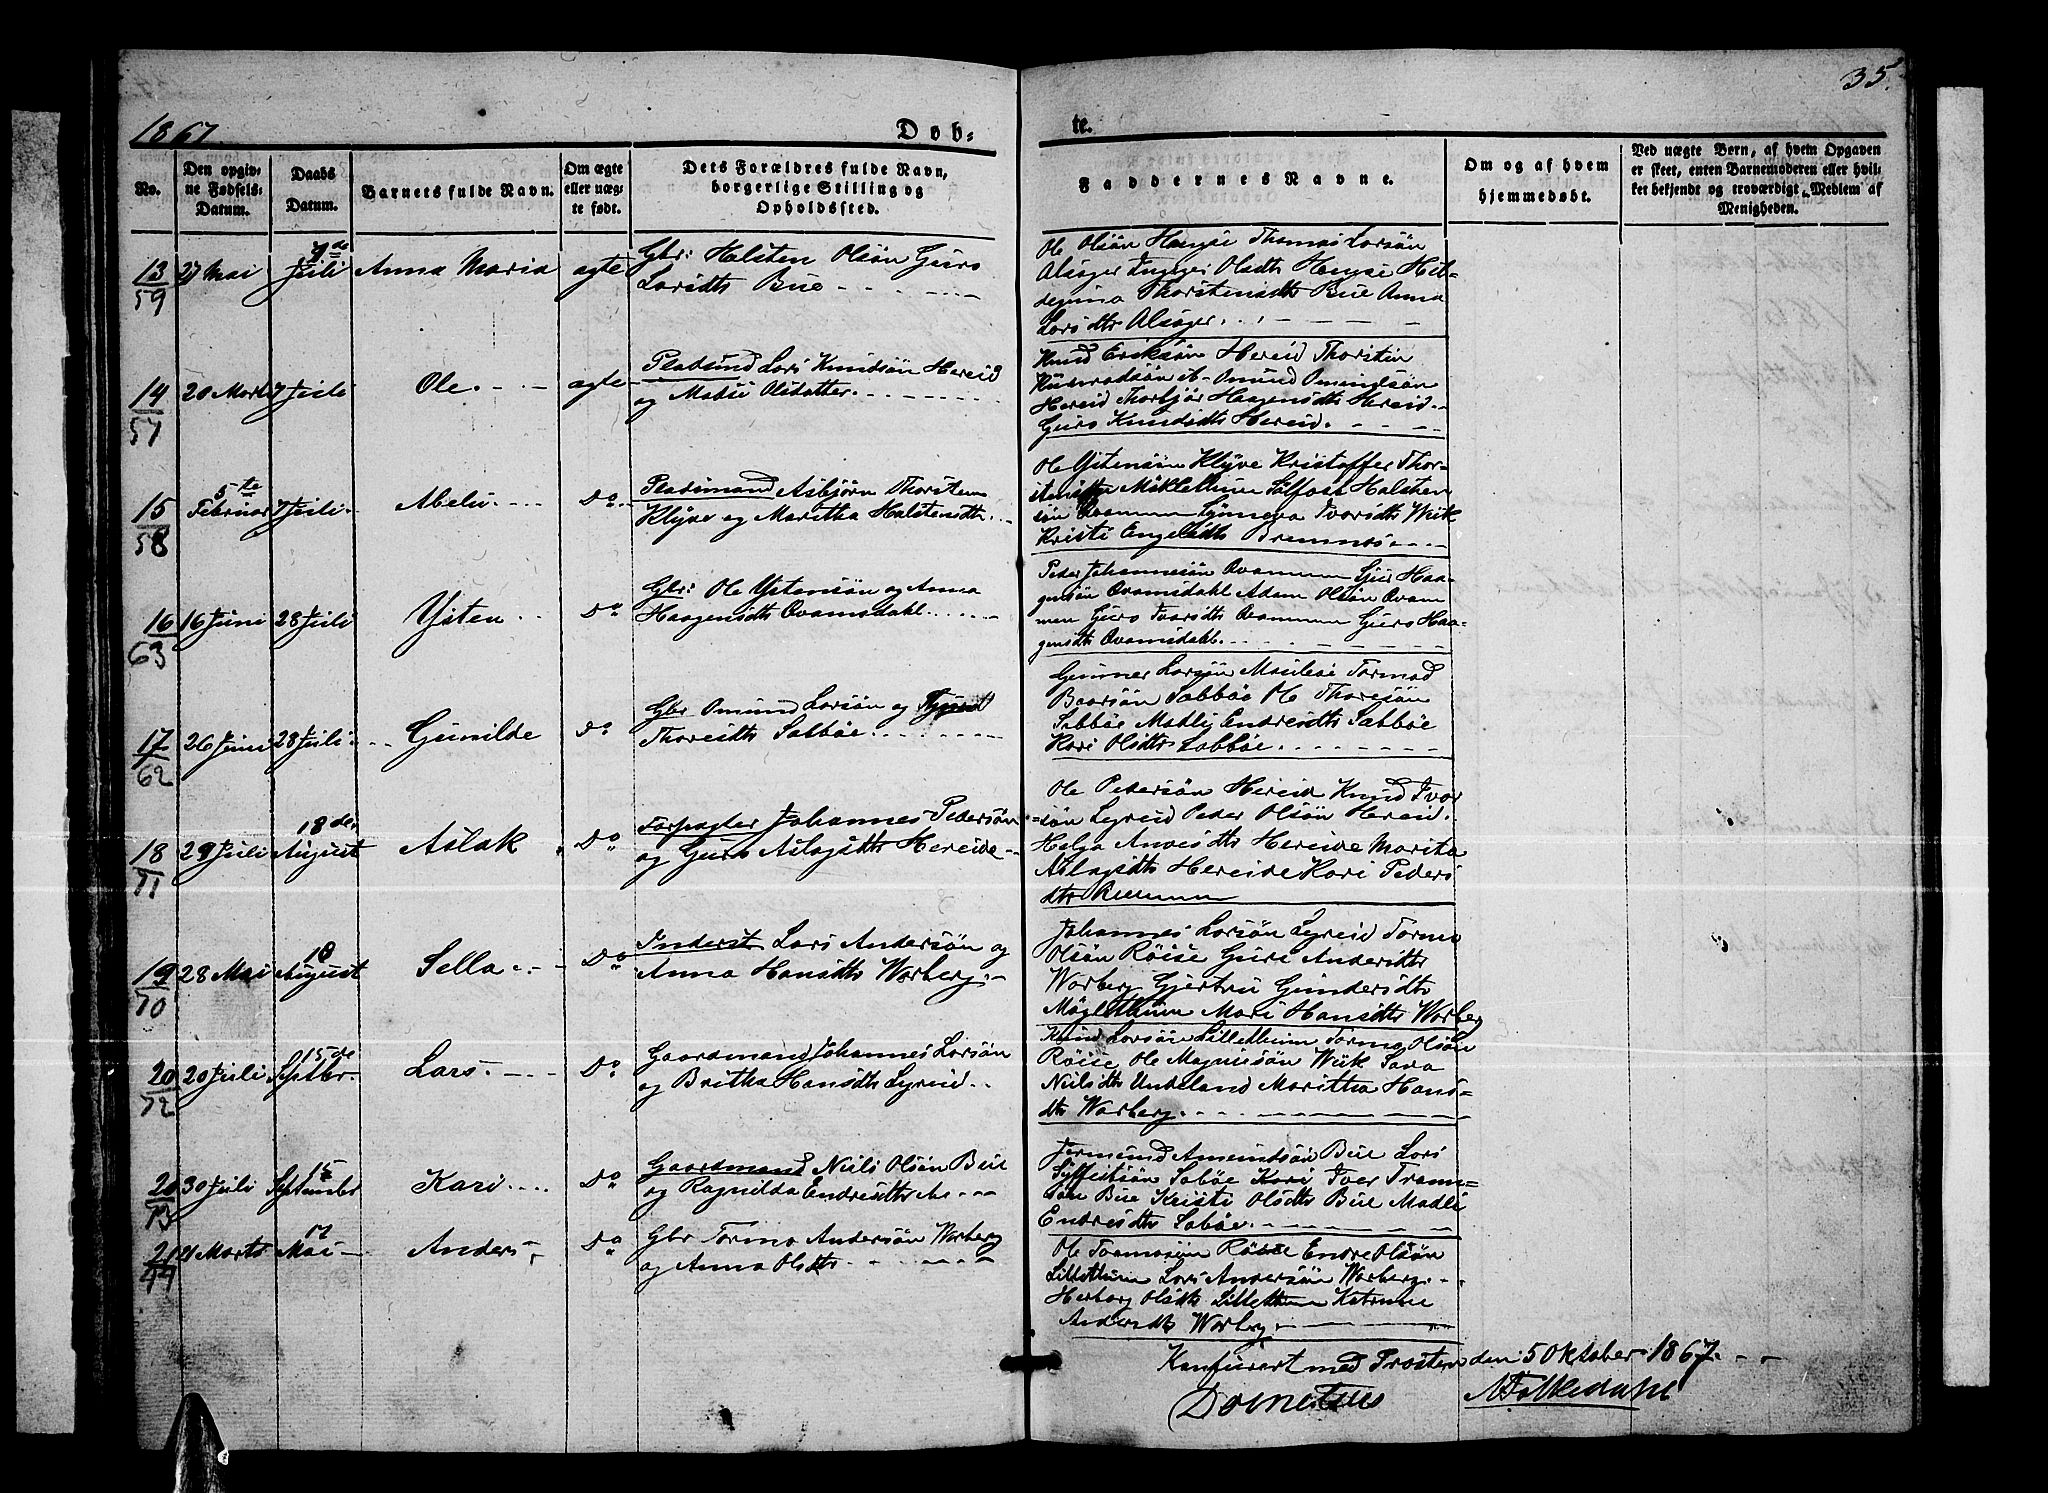 35.
1867.
Døb-
te.
No.
Den opgiv-
ne Fødsels-
Datum.
Daabs
Datum.
Barnets fulde Navn.
Om ægte
eller uæg-
te født.
Dets Forældres fulde Navn,
borgerlige Stilling og
Opholdssted.
Faddernes Navne.
Om og af hvem
hjemmedøbt.
Ved uægte Børn, af hvem Opgaven
er skeet, enten Barnemoderen eller hvil-
ket bekjendt og troværdigt Medlem af
Menigheden.
13
59
27 Mai
7de
Juli
Anna Maria
ægte
Gbr: Halsten Olsön Guro
Larsdtr Bue
Ole Olsön Hougse Thomas Larsön
Alsager Ingger Olsdtr
Thorstensdtr Bue Anna
Larsdtr Alsager
14
57
20 Marts
7 Juli
Ole
ægte
Pladsmd Lars Knudsön Hereid
og Madsi Olsdatter
Knud Eriksön Hereid Thorstin
Omund Omundsön
Hereid Thorbjör Haagensdtr Hereid
Guro Knudsdtr Hereid
15
58
5te
Februar
7 Juli
Abelu
Do
Pladsmand Asbjörn Thorstens
Klyve og Maritha Halstensdtr
Ole Ystensön Klyve Kristoffer Thor-
Halsten
sön Qvammen Synneva Ivarsdtr Wiik
Kristi Engelsdtr Bremnes
16
63
16 Juni
28 Juli
Ysten
Do
Gbr: Ole Ystensön og Anna
Haagensdtr Qvamsdahl
Peder Johannesön Qvammen Gjur Haa-
gensön Qvamsdahl Adam Olsön Qvam
men Guro Ivarsdtr Qvammen Guro Haa-
gensdtr Qvamsdahl
17
62
26 Juni
28 Juli
Gunilde
Do
Gbr Omund Larsön og
Thorsdtr Sæbböe
Gunner Larsön Maulese Tormod
Baarsön Sæbböe Ole Thoresön
Sæbböe Madly Endresdtr Sæbböe
Kari Olsdtr Sæbböe
18
71
29 Juli
18de
August
Aslak
Do
Forpagter Johannes Pedersön
og Guro Aslagsdtr Hereide
Ole Pedersön Hereide Knud Ivar
sön Legreid Peder Olsön Hereid
Helga Arvesdtr Hereide Marita
Aslagsdtr Hereide Kari Peders
dtr
19
70
28 Mai
18
August
Sella
Do
Inderst Lars Andersön og
Anna Hansdtr Warberg
Johannes Larsön Lyreid Tormo
Olsön Röise Guri Andersdtr
Warberg Gjertru Gundersdtr
Mögletuun Mari Hansdtr Warberg
20
72
20 Juli
15de
Septbr
Lars
Do
Gaardmand Johannes Larsön
og Britha Hansdtr Lyreid
Knud Larsön Lilletuun Tormo Olsön
Röise Ole Magnesön Wiik Sara
Nielsdtr Undeland Maritha Hans-
dtr Warberg
20
73
30 Juli
15
September
Kari
Do
Gaardmand Niels Olsön Bue
og Ragnilda Endresdtr
Jermund Amundsön Bue Lars
Sjffertsön Sæböe Kari Iver
Bue Kristi Olsdtr Bue Madli
Endresdtr Sæböe
21
44
21 Marts
17
Mai
Anders
Do
Gbr Tormo Andersön Warberg
og Anna Olsdtr
Ole Tormosön Röise Endre Olsön
Lilletuun Lars Andersön Warberg
Herborg Olsdtr Lilletuun Katrine
Andersdtr Warberg
Konfirert med Prosten den 5 Oktober 1867
Folkedahl